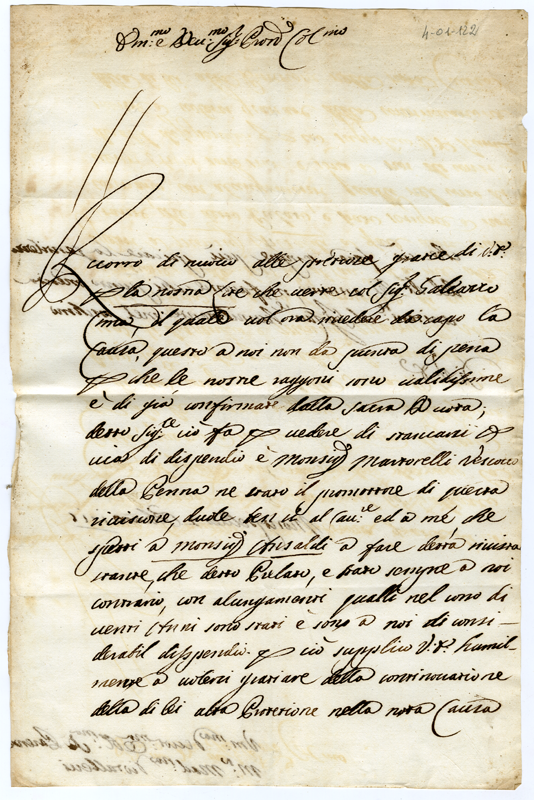 Ill.mo e Rev.mo Sig.r Pron. Col.mo
4-01-122
Ricorro di nuovo alle preziose grazie di V.S.
p la nostra che verte col Sig.r Galiazzo
Cima, il quale vol ora rivedere da capo la
Causa, questo a noi non da punto di pena
p che le nostre raggioni sono validissime
è di già confirmate dalla Sacra Rota,
detto Sig.re ciò fa p vedere di stancarci p
via di dispendio è Monsig.r Martorelli Vescovo
della Penna ne stato il promottore di questa
ricisione al Cau.re ed a mé, che
spetti a Monsig.r Ansaldi a fare detta
stante, che detto Prelato, e stato sempre a noi
contrario, con alungamenti qualli nel corso di
venti Anni sono stati è sono a noi di consi-
derabil dispendio. p ciò supplico V.S. humil-
mente a volerci graziare della continuazione
della di lei alta Protezione nella nota Causa